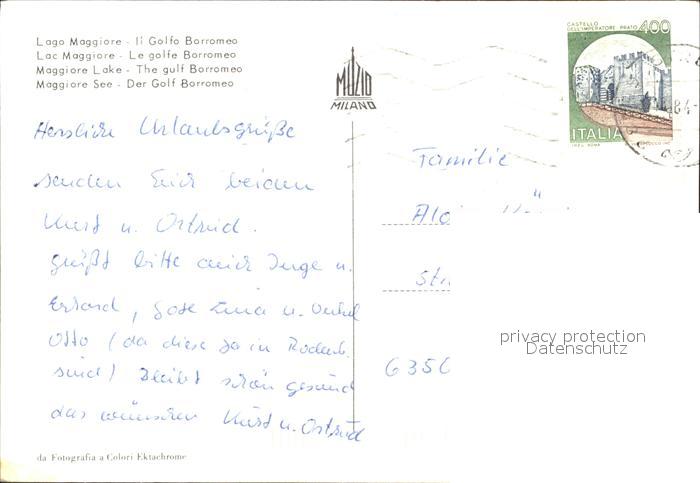 Lago Maggiore - Il Golfo Borromeo
Lac Maggiore - Le golfe Borromeo
Maggiore Lake - The gulf Borromeo
Maggiore See - Der Golf Borromeo
MUZIO
MILANO
CASTELLO
DELL'IMPERATORE PRATO 400
ITALIA
I.P.Z.S. ROMA
84
Herzliche Urlaubsgrüße
senden Euch beiden
Kurt u. Ortrud.
grüßt bitte auch Inge u.
Erhard, Gose Erna u. Onkel
Otto (da diese ja in Rodenb.
sind) Bleibt schön gesund
das wünschen Kurt u. Ortrud
Familie
6350
privacy protection
Datenschutz
da Fotografia a Colori Ektachrome